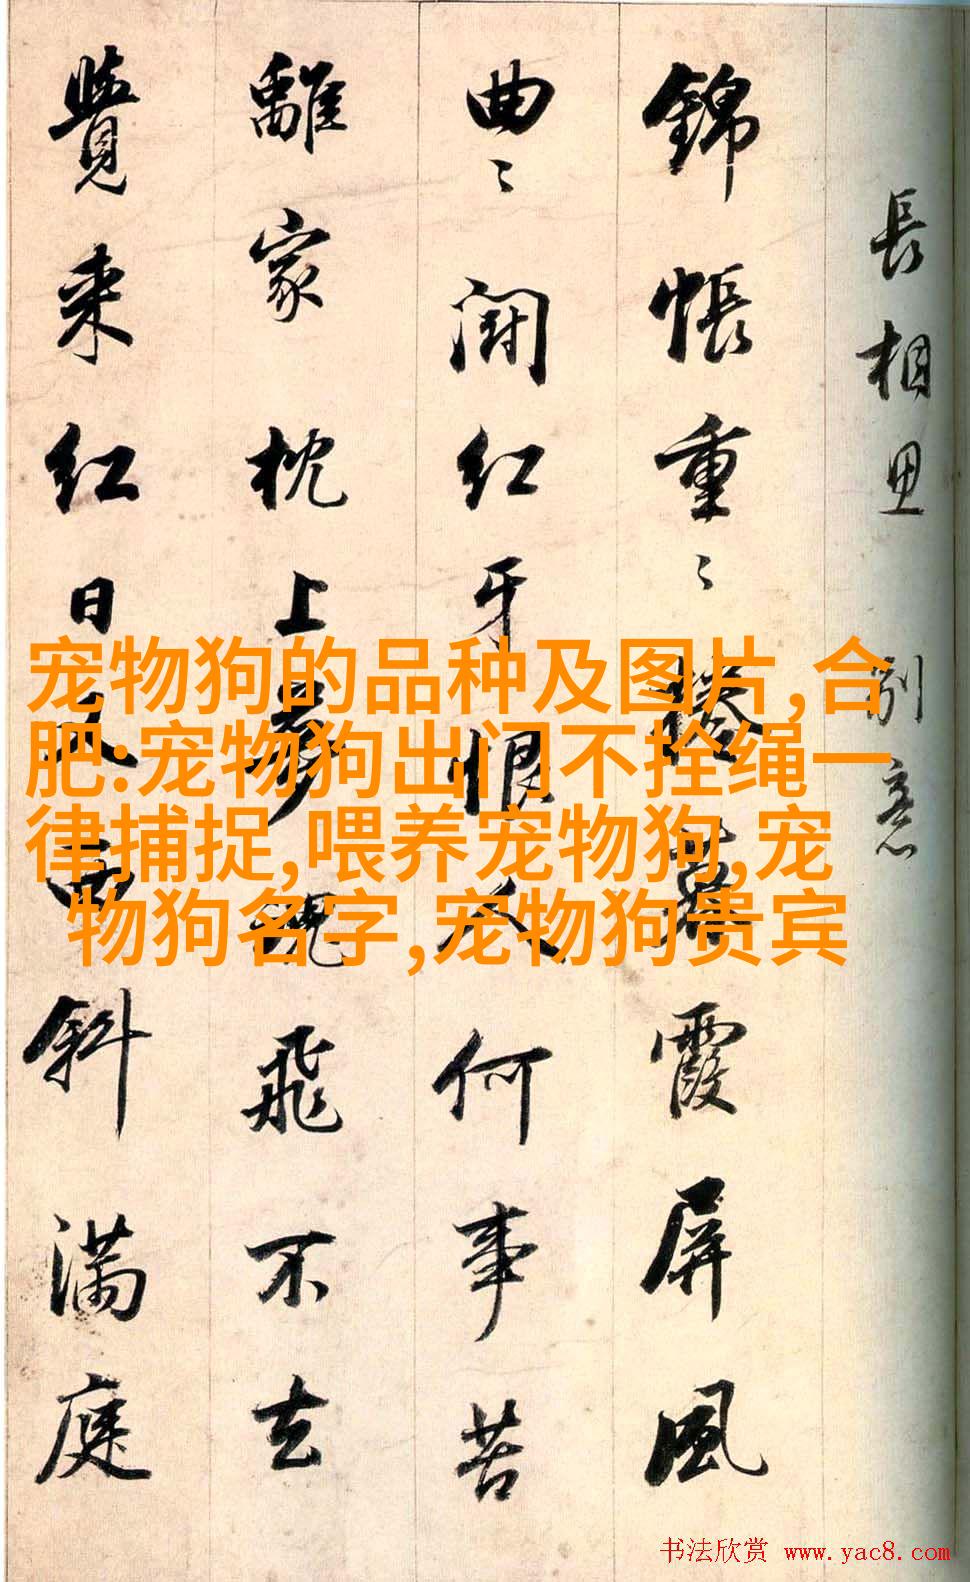 長相思 別意
錦帳重〻捲暮霞屏風
曲〻鬪紅牙恨人何事苦
離家枕上夢魂飛不去
覺来紅日又西斜滿庭
宠物狗的品种及图片,合
肥:宠物狗出门不拴绳一
律捕捉,喂养宠物狗,宠
物狗名字,宠物狗贵宾
书法欣赏 www.yac8.com